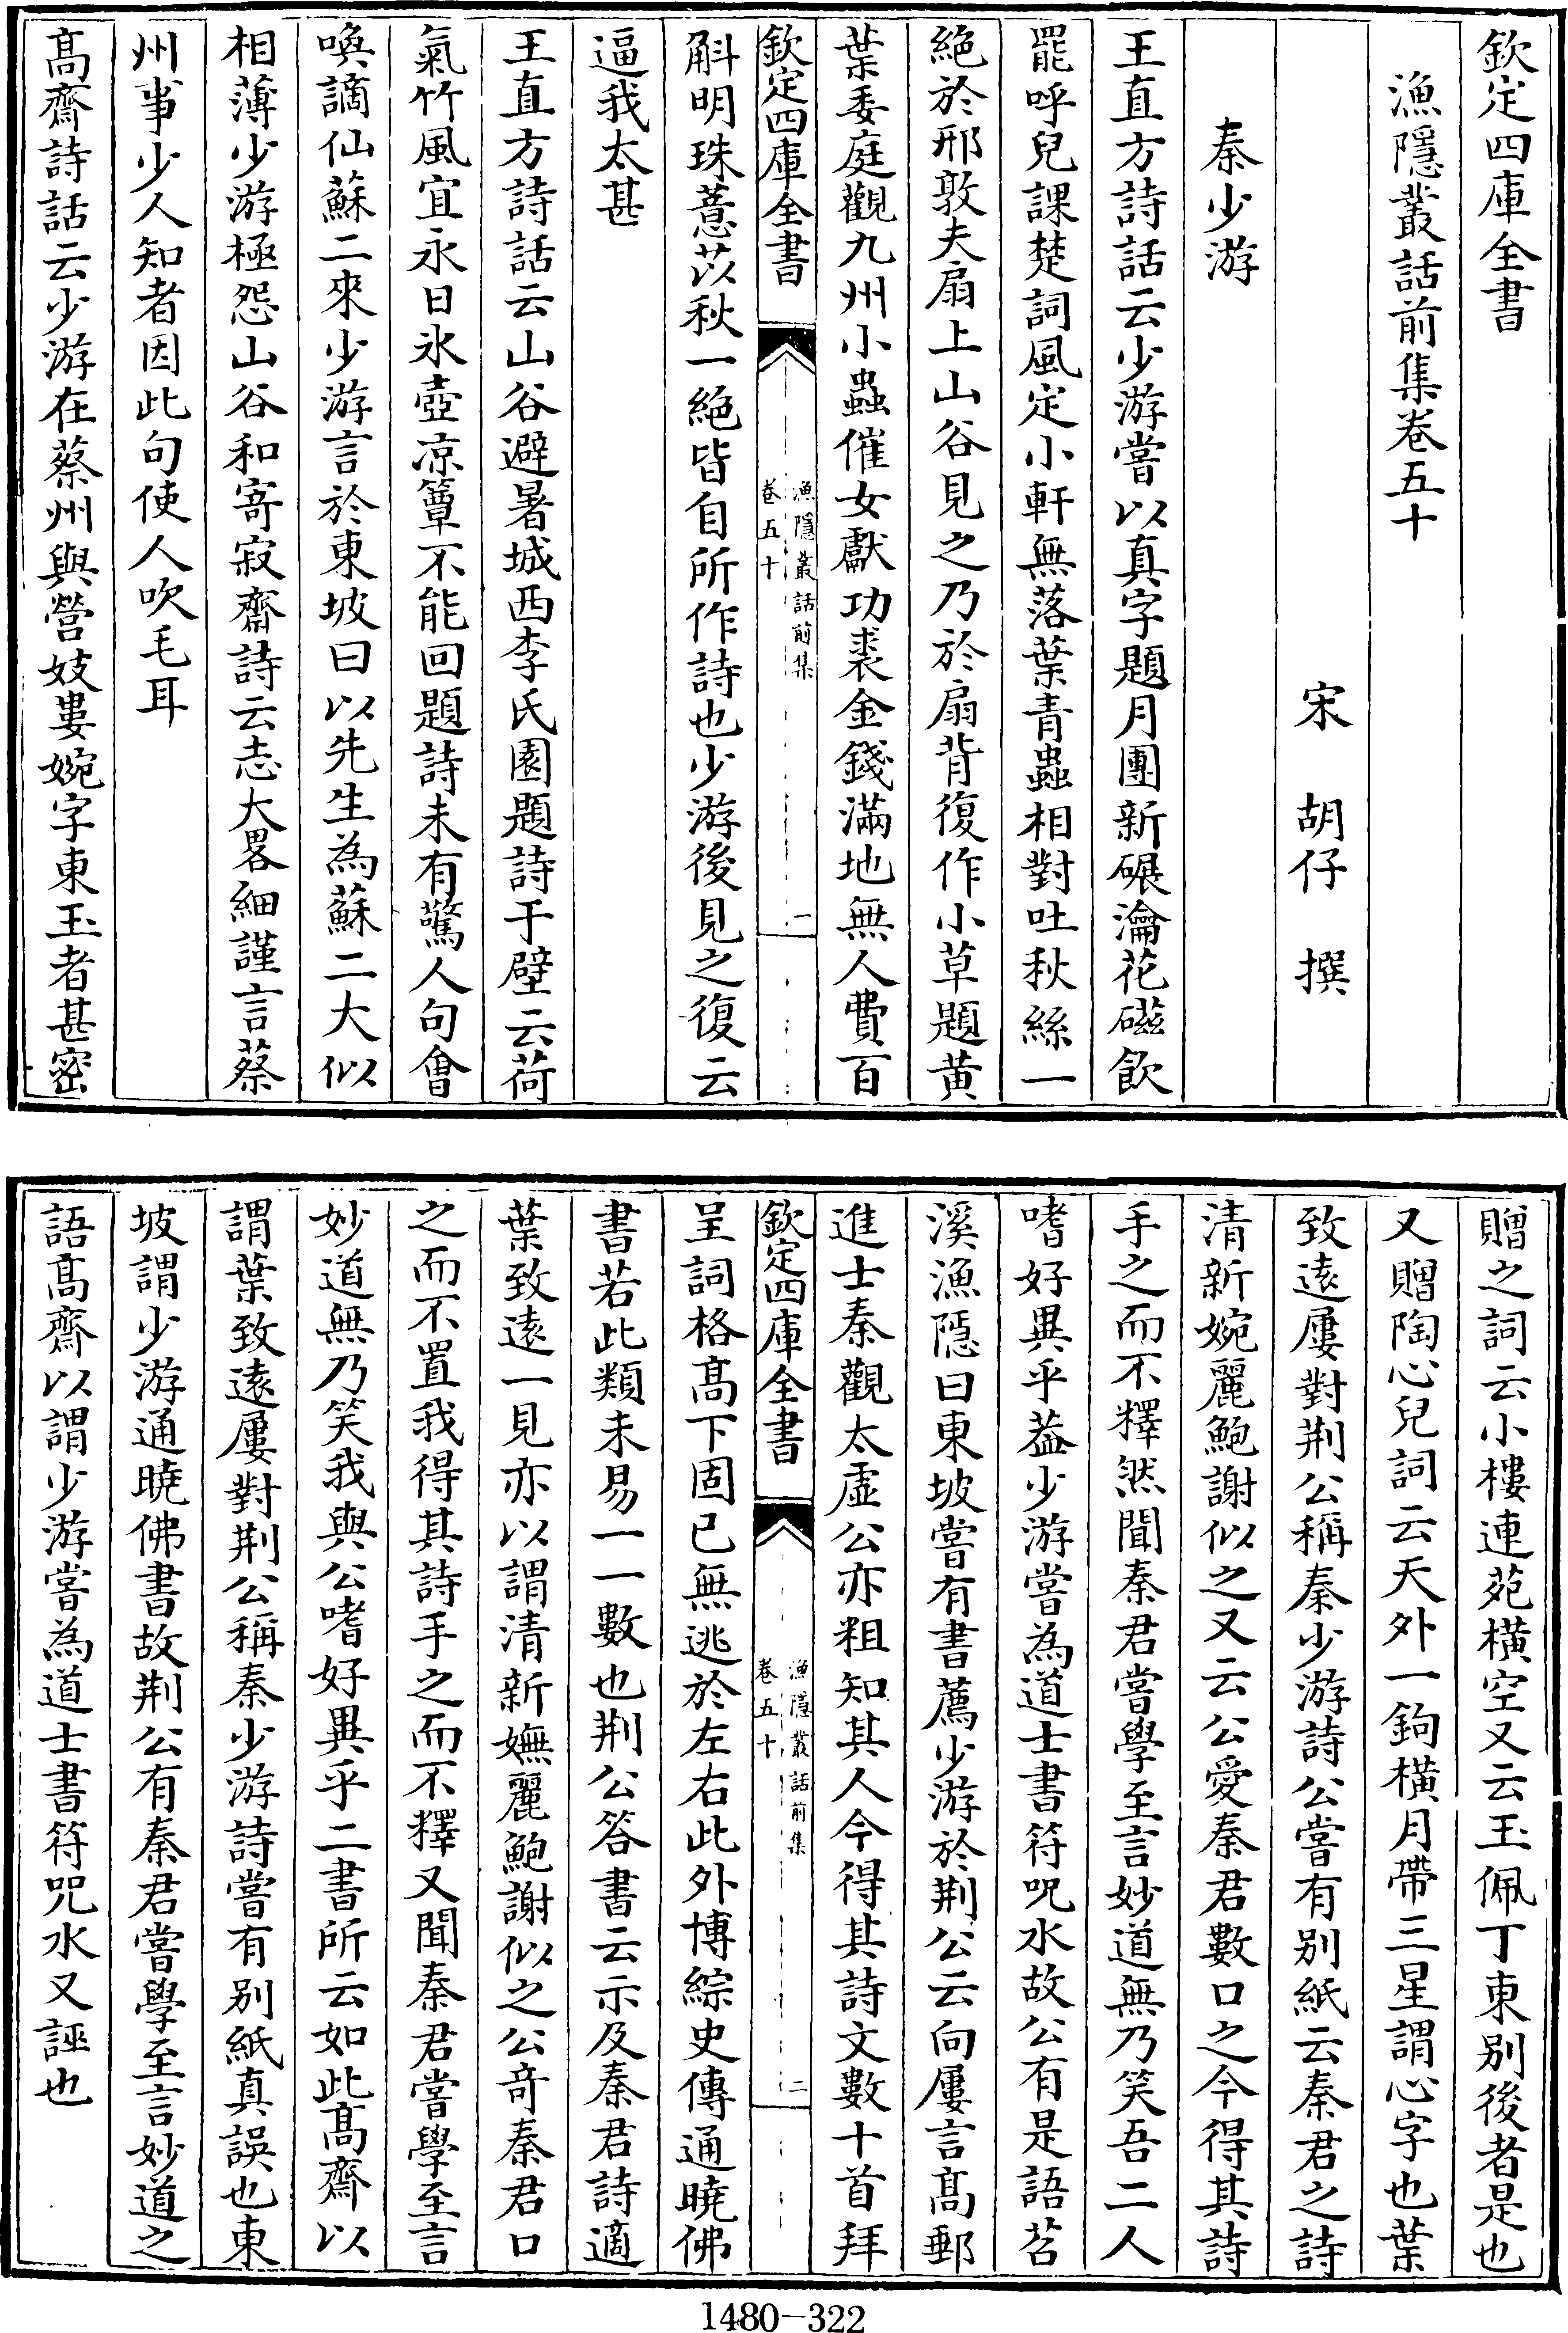 欽定四庫全書
漁隱叢話前集卷五十
宋 胡仔 撰
秦少游
王直方詩話云少游嘗以真字題月團新碾瀹花磁飲
罷呼兒課楚詞風定小軒無落葉青蟲相對吐秋絲一
絶於邢敦夫扇上山谷見之乃於扇背復作小草題黄
葉委庭觀九州小蟲催女獻功裘金錢滿地無人費百
欽定四庫全書
漁隱叢話前集
卷五十
一
斛明珠薏苡秋一絶皆自所作詩也少游後見之復云
逼我太甚
王直方詩話云山谷避暑城西李氏園題詩于壁云荷
氣竹風宜永日氷壺凉簟不能回題詩未有驚人句會
喚謫仙蘇二來少游言於東坡曰以先生為蘇二大似
相薄少游極怨山谷和寄寂齋詩云志大畧細謹言蔡
州事少人知者因此句使人吹毛耳
髙齋詩話云少游在蔡州與營妓婁婉字東玉者甚密
贈之詞云小樓連苑横空又云玉佩丁東别後者是也
又贈陶心兒詞云天外一鉤横月帶三星謂心字也葉
致逺屢對荆公稱秦少游詩公嘗有别紙云秦君之詩
清新婉麗鮑謝似之又云公愛秦君數口之今得其詩
手之而不釋然聞秦君嘗學至言妙道無乃笑吾二人
嗜好異乎葢少游嘗為道士書符呪水故公有是語苕
溪漁隠曰東坡嘗有書薦少游於荆公云向屢言髙郵
進士秦觀太虚公亦粗知其人今得其詩文數十首拜
欽定四庫全書
漁隱叢話前集
卷五十
二
呈詞格髙下固已無逃於左右此外博綜史傳通曉佛
書若此類未易一一數也荆公答書云示及秦君詩適
葉致逺一見亦以謂清新嫵麗鮑謝似之公竒秦君口
之而不置我得其詩手之而不釋又聞秦君嘗學至言
妙道無乃笑我與公嗜好異乎二書所云如此髙齋以
謂葉致逺屢對荆公稱秦少游詩嘗有别紙真誤也東
坡謂少游通曉佛書故荆公有秦君嘗學至言妙道之
語髙齋以謂少游嘗為道士書符咒水又誣也
1480-322